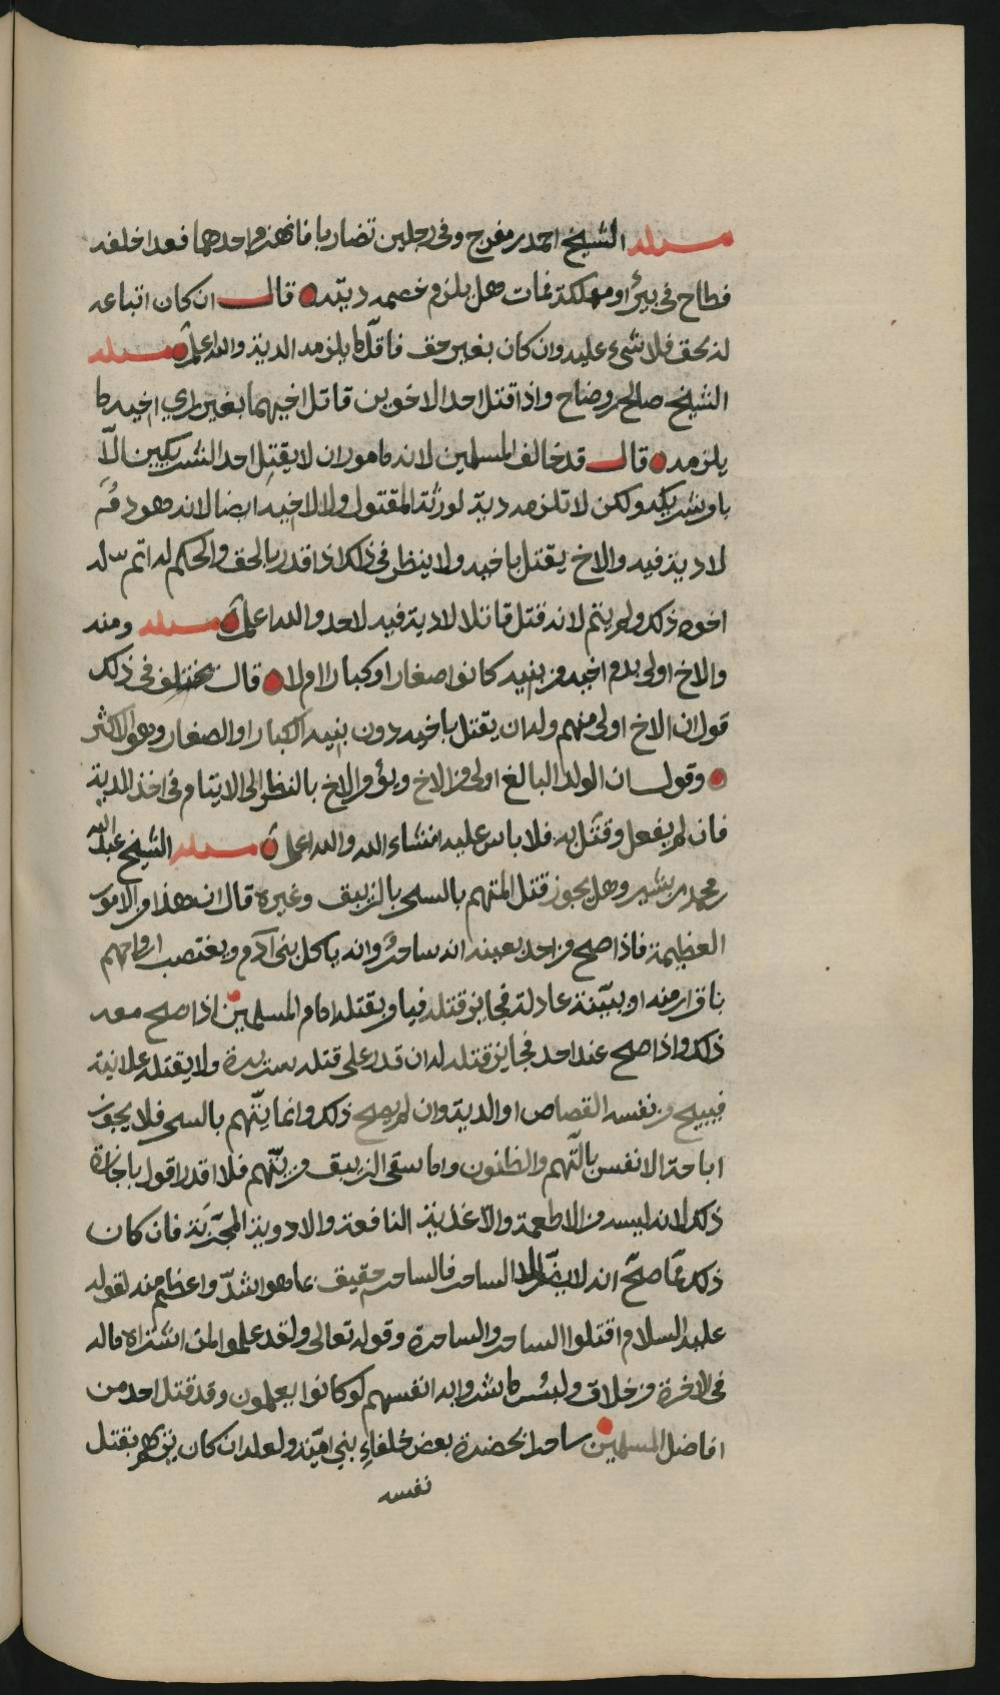 مسئله الشيخ احمد بن مفرج وفى رجلين تضاربا فانهزم احدهما فعدا خلفه
فطاح فى بير او مهلكة فمات هل يلزم خصمه ديته قال ان كان اتباعه
له بحق فلا شىء عليه وان كان بغير حق فاقل ما يلزمه الدية والله اعلم مسئله
الشيخ صالح بن وضاح واذا قتل احد الاخوين قاتل اخيهما بغير راي اخيه ما
يلزمه قال قد خالف المسلمين لانه مامور ان لا يقتل احد الشريكين الّا
بامر شريكه ولكن لا تلزمه دية لورثة المقتول ولا لاخيه ايضا لانه هو دم
لا دية فيه والاخ يقتل باخيه ولا ينظر فى ذلك اذا قدر بالحق والحكم له اتم له
اخوه ذلك ولم يتم لانه قتل قاتلا لا دية فيه لاحد والله اعلم مسئله ومنه
والاخ اولى بدم اخيه من بنيه كانوا صغارا او كبارا ام لا قال مختلف فى ذلك
قول ان الاخ اولى منهم وله ان يقتل باخيه دون بنيه الكبار او الصغار وهو الاكثر
وقول ان الولد البالغ اولى من الاخ ويؤمر الاخ بالنظر الى الايتام فى اخذ الدية
فان لم يفعل وقتل به فلا باس عليه انشاء الله والله اعلم مسئله الشيخ عبدالله
بن محمد بن بشير وهل يجوز قتل المتهم بالسحر بالزيبق وغيره قال ان هذا من الامور
العظيمة فاذا صح من احد بعينه انه ساحر وانه ياكل بنى آدم ويغتصب ارواحهم
باقرار منه او ببينة عادلة فجايز قتله فيامر بقتله امام المسلمين اذا صح معه
ذلك واذا صح عند احد فجايز قتله له ان قدر على قتله سريرة ولا يقتله علانية
فيبيح من نفسه القصاص او الدية وان لم يصح ذلك وانما يتهم بالسحر فلا يجوز
اباحة الانفس بالتهم والظنون واما سقى الزيبق من يتهم فلا اقدر اقول باجازة
ذلك لانه ليس من الاطعمة والاغذية النافعة والادوية المجربة فان كان
ذلك مما صح انه لا يضر الا الساحر فالساحر حقيق بما هو اشد واعظم منه لقوله
عليه السلام اقتلوا الساحر والساحرة وقوله تعالى ولقد علموا لمن اشتراه ماله
فى الاخرة من خلاق ولبئس ما شروا به انفسهم لو كانوا يعلمون وقد قتل احد من
افاضل المسلمين ساحرا بحضرة بعض خلفاء بني امية ولعله ان كان يوهم بقتل
نفسه